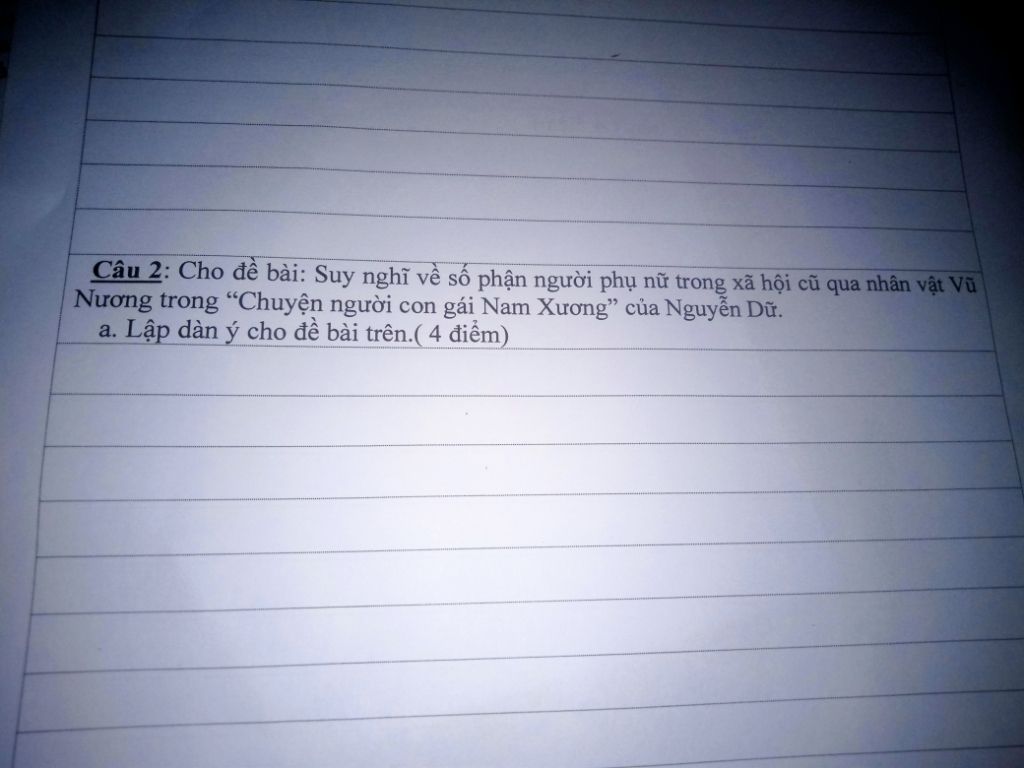 Câu 2: Cho đề bài: Suy nghĩ về số phận người phụ nữ trong xã hội cũ qua nhân vật Vũ
Nương trong “Chuyện người con gái Nam Xương” của Nguyễn Dữ.
a. Lập dàn ý cho đề bài trên.( 4 điểm)